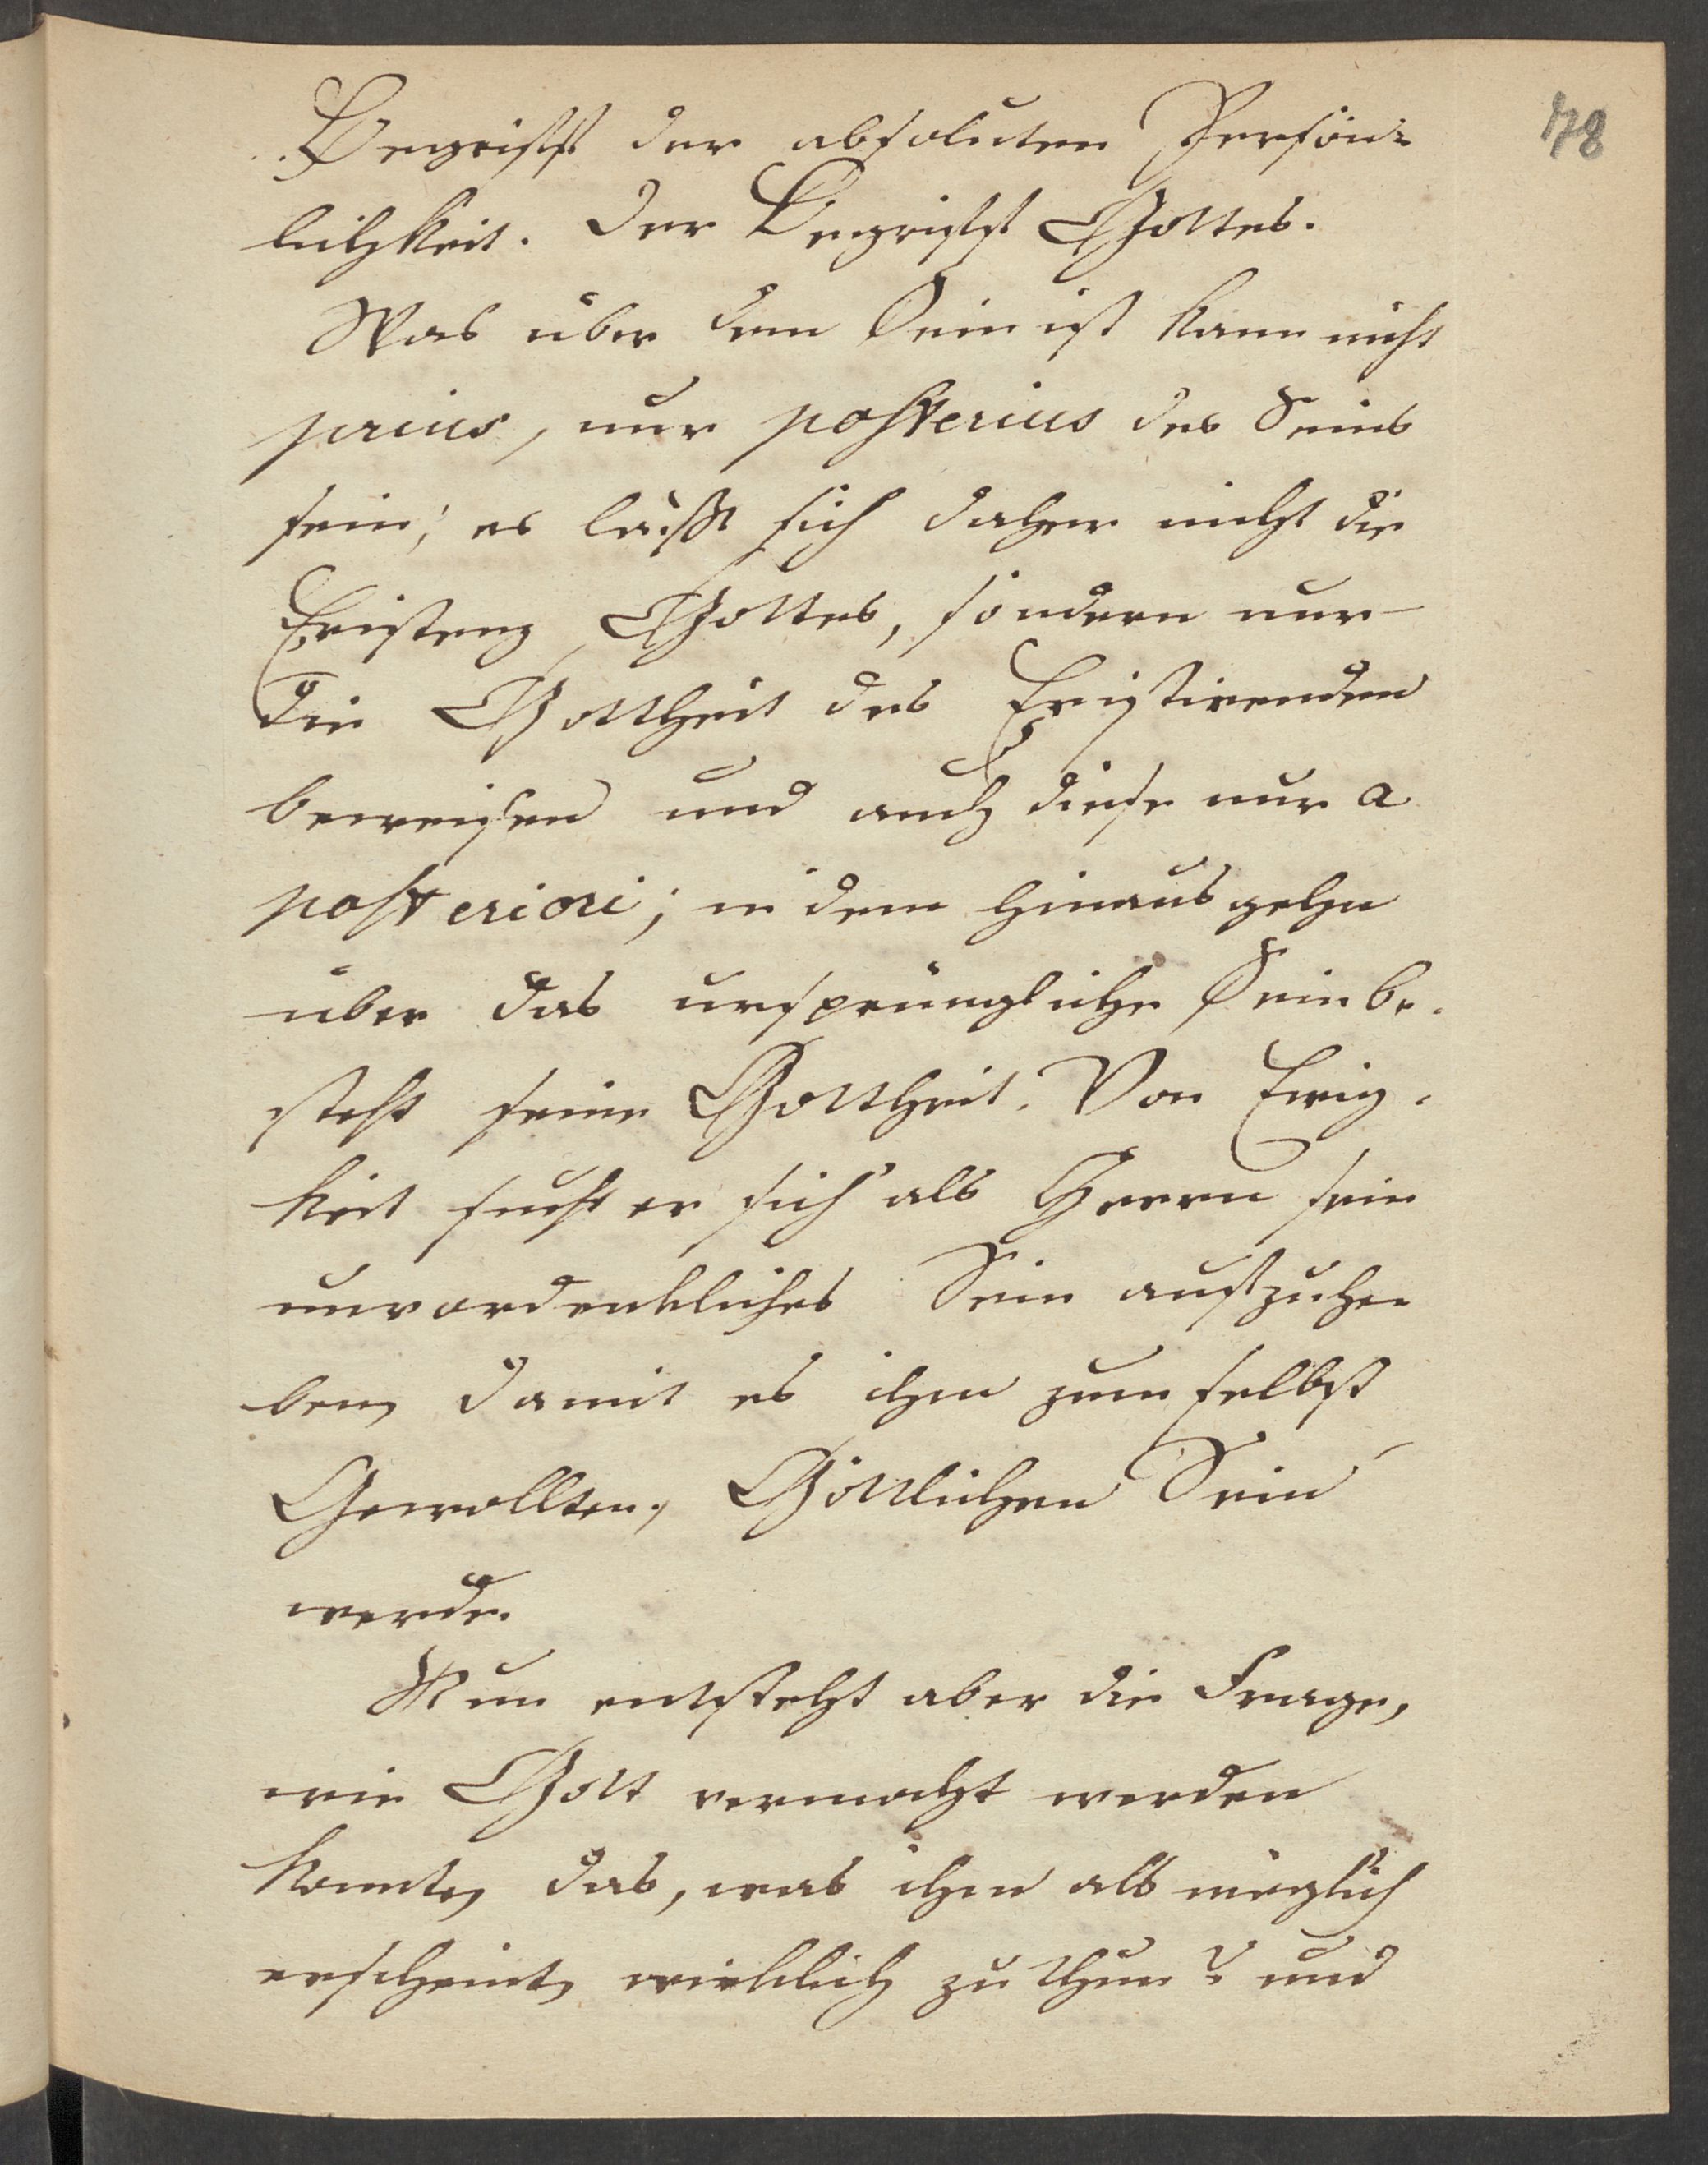 78
Begriff der absoluten Persön-
lichkeit. Der Begriff Gottes.
Was über dem Sein ist kann nicht
prius, nur posterius des Seins
sein; es läßt sich daher nicht die
Existenz Gottes, sondern nur
die Gottheit des Existirenden
beweisen und auch diese nur a
posteriori; in dem Hinausgehn
über das ursprüngliche Sein be-
steht seine Gottheit. Von Ewig-
keit sieht er sich als Herrn sein
unvordenkliches Sein aufzuhe
ben, damit es ihm zum selbst
Gewollten, Göttlichen Sein
werde.
Nun entsteht aber die Frage,
wie Gott vermocht werden
konnte, das, was ihm als möglich
erscheint, wirklich zu thun? und